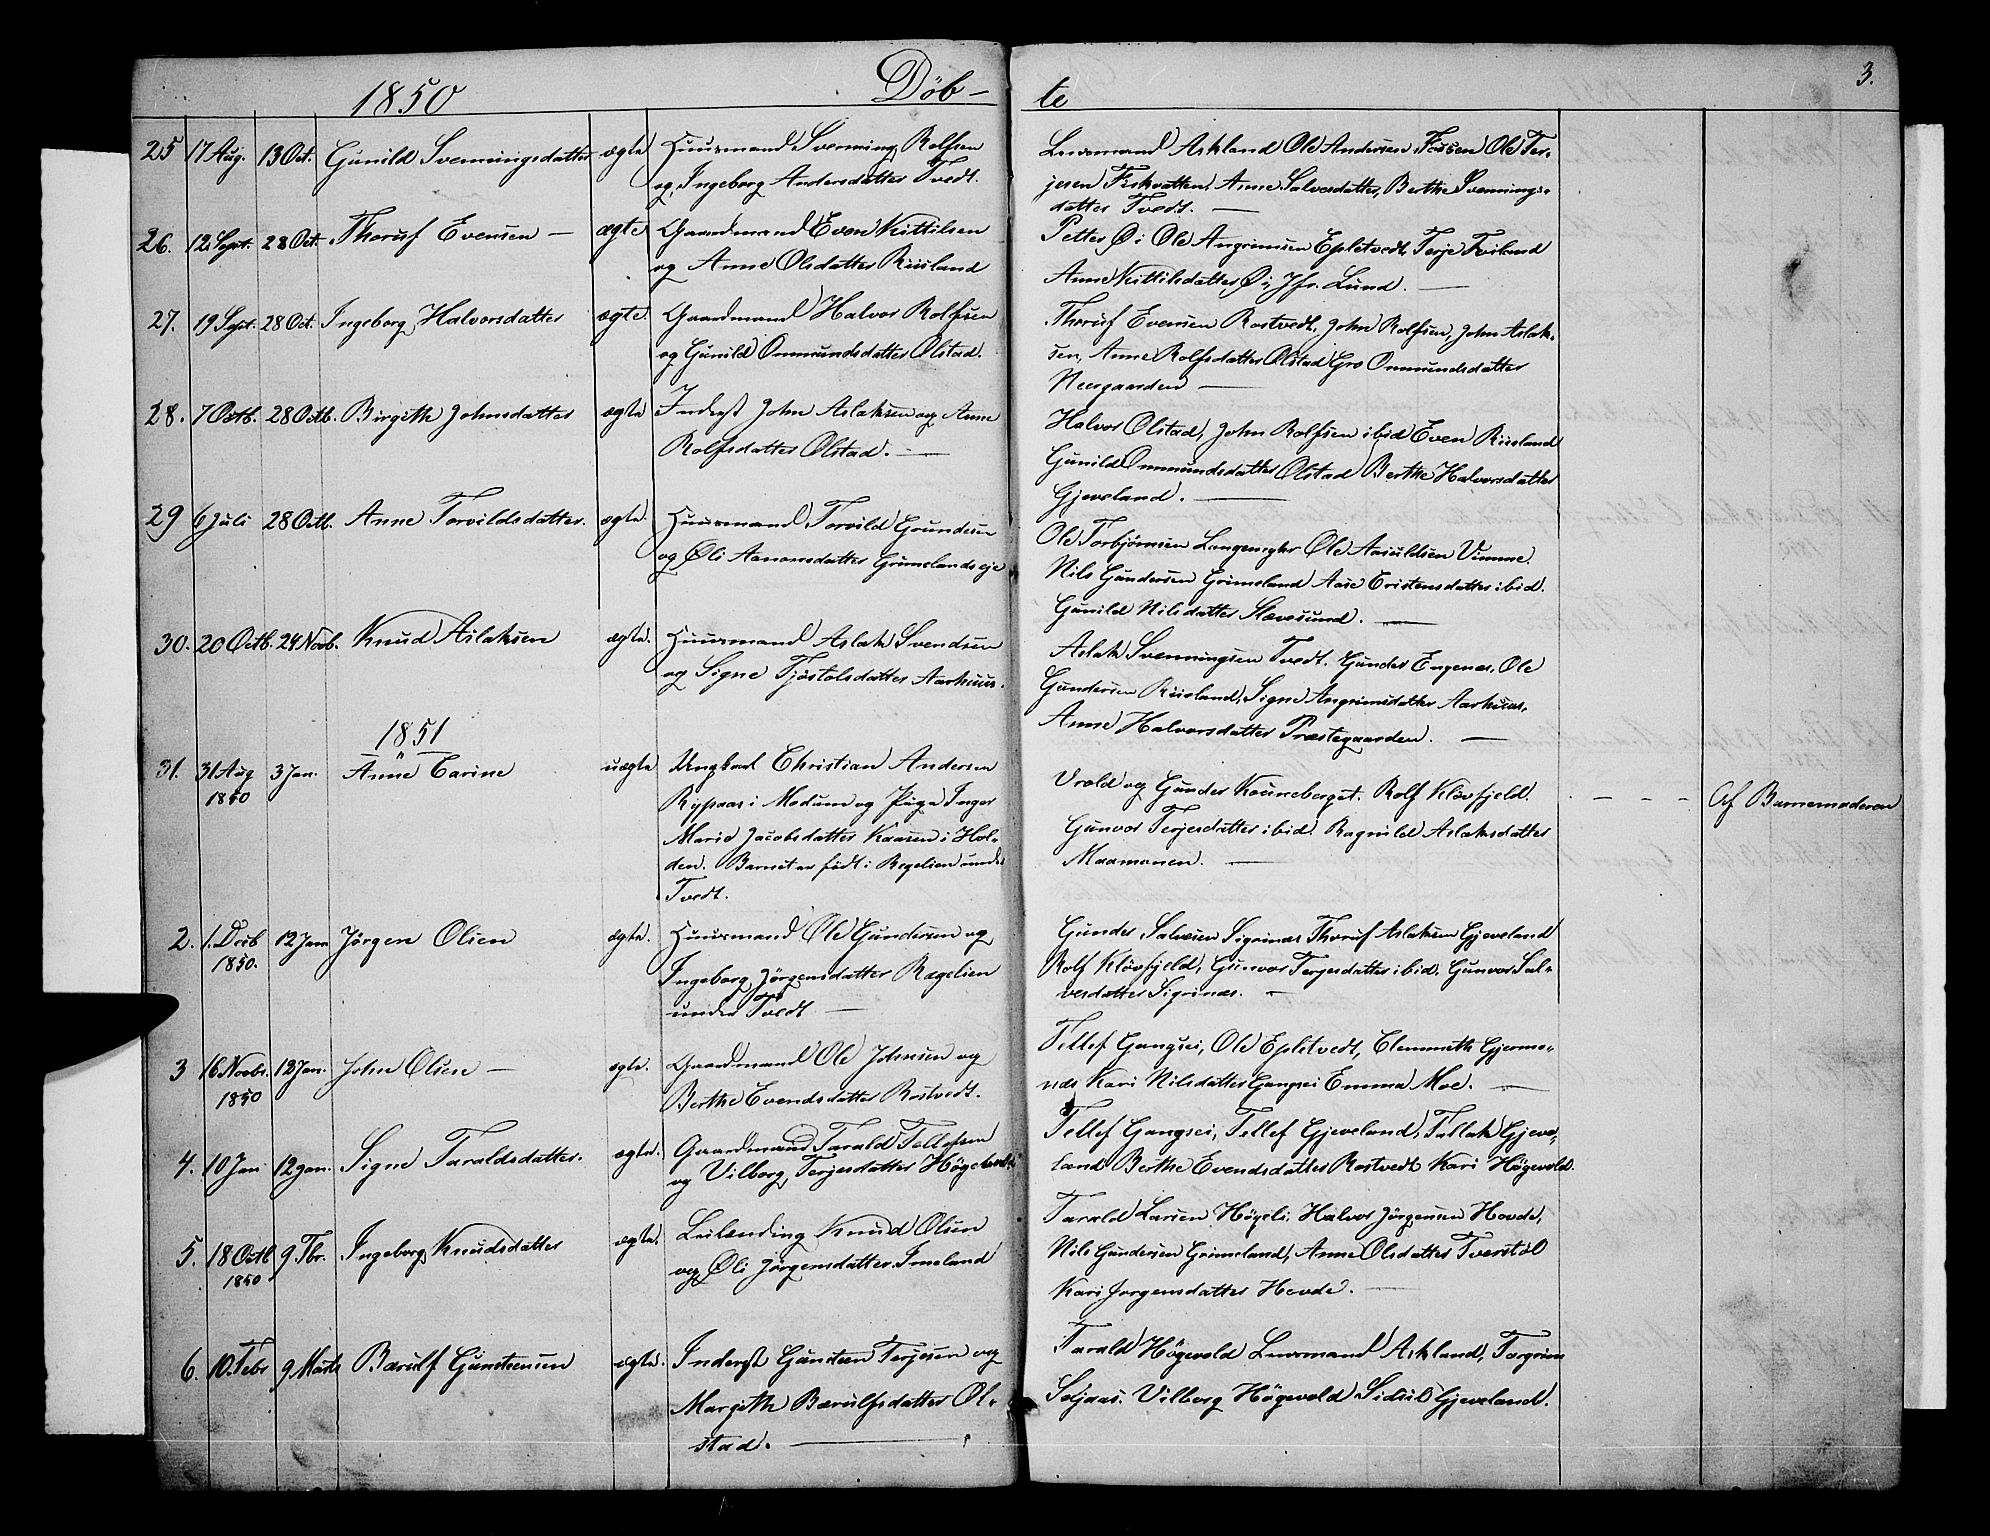 3.
1850 Döb- te
25 17 Aug. 13 Oct. Gunild Svenningsdatter ægte Huusmand Svenning Rolfsen
og Ingeborg Andersdatter Tvedt.
Lensmand Askland Ole Andersen Fossen Ole Ter-
jesen Fiskvatten, Anne Salvesdatter, Berthe Svennings-
datter Tvedt. —
26. 12 Sept. 28 Oct. Thoruf Evensen — ægte Gaardmand Even Kittilsen
og Anne Olsdatter Riisland
Petter Øi Ole Angrimsen Epletvedt, Terje
Anne Kittilsdatter Øi, Jfr. Lund. —
27. 19 Sept. 28 Oct. Ingeborg Halvorsdatter ægte. Gaardmand Halvor Rolfsen
og Gunild Onmundsdatter Olstad.
Thoruf Evensen Rostvedt, John Rolfsen, John Aslak-
sen, Anne Rolfsdatter Olstad Gro Onmundsdatter
Neergaarden —
28. 7 Octb. 28 Octb. Birgithe Johnsdatter ægte Inderst John Aslaksen og Anne
Rolfsdatter Olstad. —
Halvor Olstad, John Rolfsen ibid Even Riisland
Gunild Onmundsdatter Olstad Berthe Halvorsdatter
Gjeveland. —
29 6 Juli 28 Octb. Anne Torvildsdatter. ægte. Huusmand Torvild Gundersen
og Øli Aanonsdatter Grimelandseje
Ole Torbjörnsen Langemyhr Ole Vimme.
Nils Gundersen Grimeland Aase Eristensdatter ibid.
Gunild Nilsdatter Stævesund. —
30. 20 Octb. 24 Novb. Knud Aslaksen ægte. Huusmand Aslak Svendsen
og Signe Tjöstolsdatter Aarhuus.
Aslak Svenningsen Tvedt. Gunder Engenes, Ole
Gundersen Riisland, Signe Angrimsdatter Aarhuus,
Anne Halvorsdatter Præstegaarden. —
1851
31. 31 Aug 1850 3 Jan. Anne Carine uægte Ungkarl Christian Andersen
Rypaas i Modum og Pige Inger
Marie Jacobsdatter Kaasen i Hol-
den. Barnet er født i Regelien under
Tvedt.
Vrold og Gunder Kouneberget. Rolf Klövfjeld.
Gunvor Terjesdatter ibid. Ragnild Aslaksdatter
Maamonen. —
— — — Af Barnemoderen
2. 1. Decb 1850. 12 Jan Jörgen Olsen ægte. Huusmand Ole Gundersen og
Ingeborg Jörgensdatter Rægelien
under Tvedt —
Gunder Salvesen Sigrinæs Thoruf Aslaksen Gjeveland
Rolf Klövfjeld, Gunvor Terjesdatter ibid. Gunvor Sal-
vesdatter Sigrinæs. —
3 16 Novbr. 1850 12 Jan. John Olsen — ægte. Gaardmand Ole Johnsen og
Berthe Evendsdatter Rostvedt.
Tellef Gangsei, Ole Epletvedt, Clemmeth Gjermo-
næs Kari Nilsdatter Gangsei Emma Moe. —
4. 10 Jan 12 Jan. Signe Taraldsdatter. ægte. Gaardmand Tarald Tellefsen
og Vilborg Terjesdatter Högevold
Tellef Gangsei, Tellef Gjeveland, Tallak Gjeve-
land Berthe Evendsdatter Rostvedt Kari Högevold.
5. 18 Octb 1850 9 Fbr. Ingeborg Knudsdatter ægte. Leilænding Knud Olsen
og Øli Jörgensdatter Imeland
Tarald Larsen Högeli Halvor Jörgensen Hovde,
Nils Gundersen Grimeland, Anne Olsdatter Tverstøl
Kari Jorgensdatter Hovde. —
6. 10. Febr 9 Marts Bærulf Gunsteensen ægte. Inderst Gunsteen Terjesen og
Margithe Bærulfsdatter Ol-
stad. —
Tarald Högevold Lensmand Askland, Torgrim
Soljaas. Vilborg Högevold Sidsel Gjeveland.